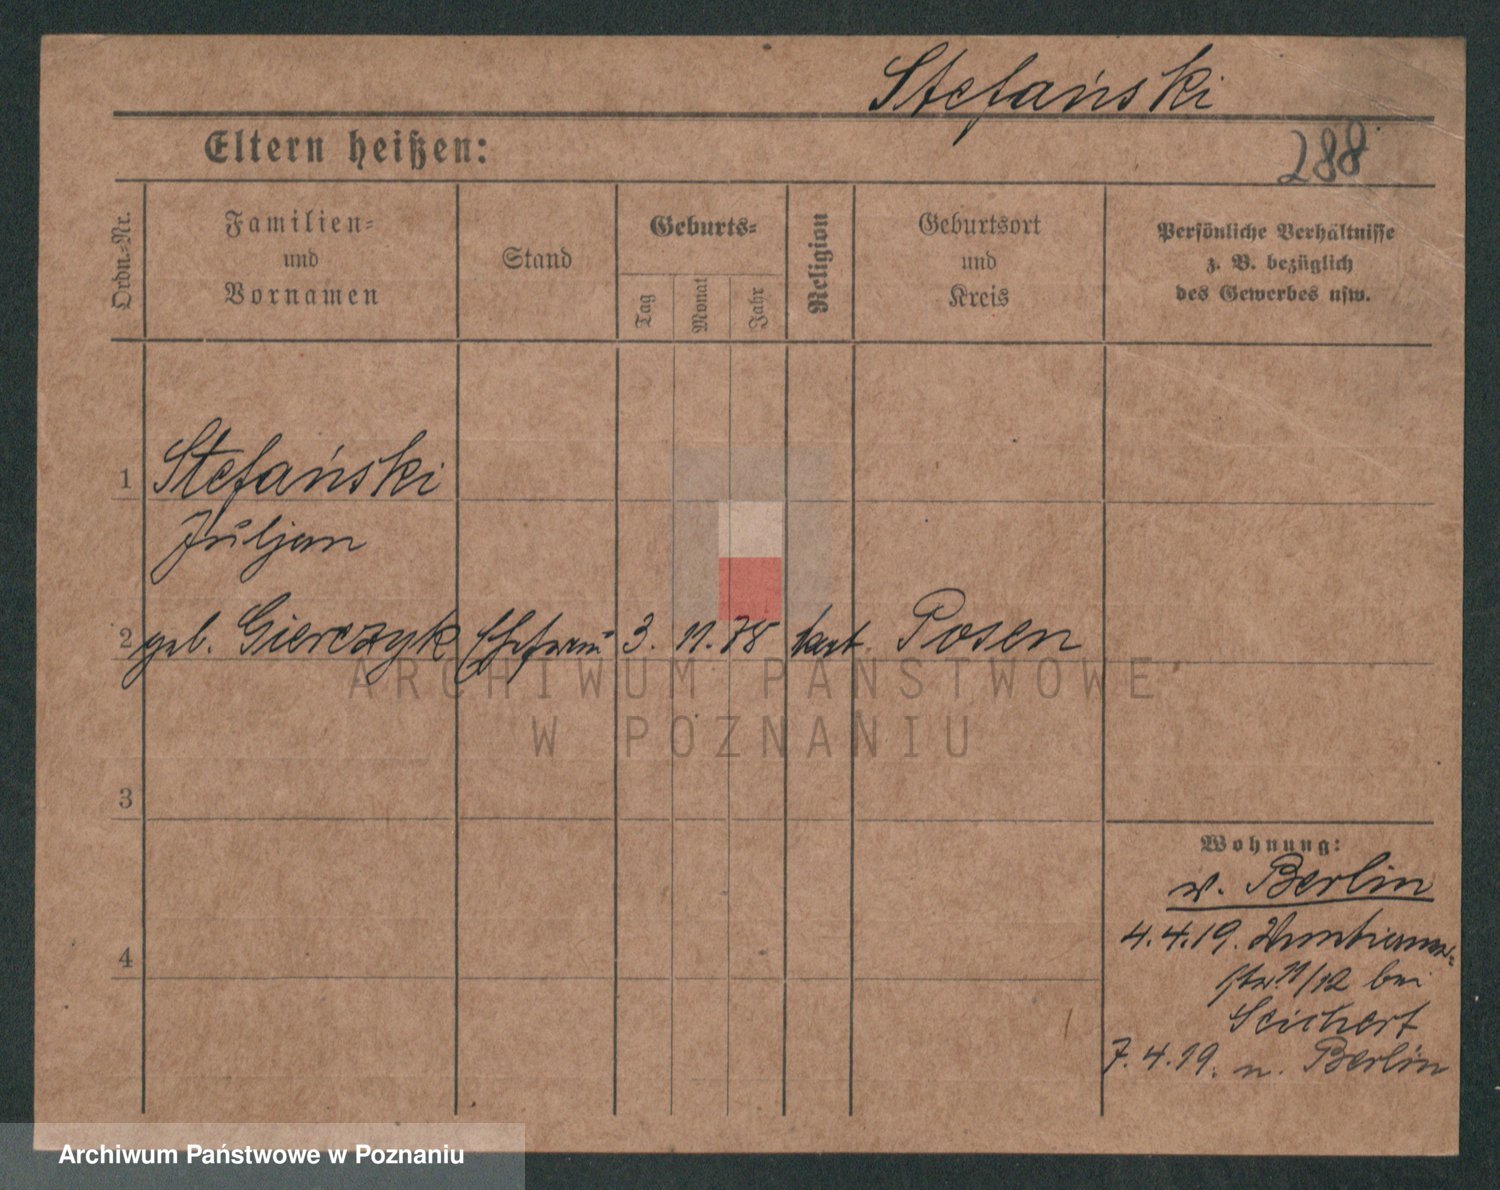 Stefański
Eltern heißen:
288
Ordn.-Nr.
Familien-
und
Vornamen
Stand
Geburts-
Tag
Monat
Jahr
Religion
Geburtsort
und
Kreis
Persönliche Verhältnisse
z. B. bezüglich
des Gewerbes usw.
1 Stefański
Juljan
2 geb. Gierczyk Ehefrau 3. 11. 78 kat. Posen
ARCHIWUM PAŃSTWOWE
W POZNANIU
3
Wohnung:
v. Berlin
4.4.19.
4
str. 11/12 bei
Seichert
7.4.19. n. Berlin
Archiwum Państwowe w Poznaniu